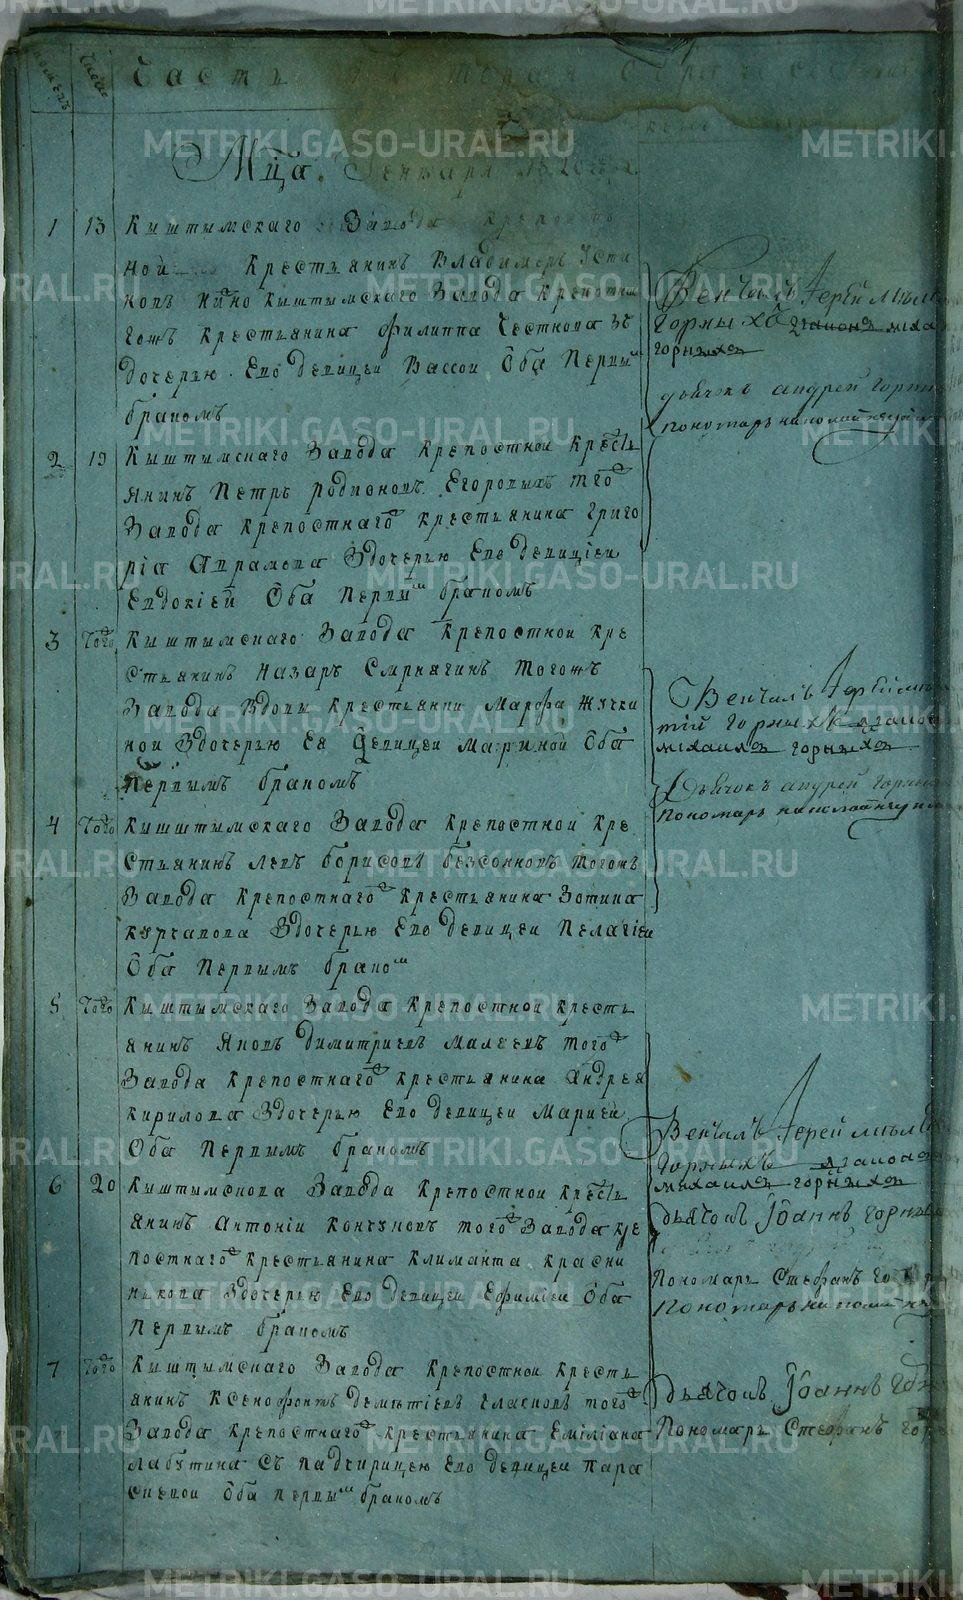 Часть вторая о бра
Мца Генваря 1820 го
1 13 Кыштымскаго Завода крепост
ной крестьянинъ Владимеръ Усти
новъ кыштымскаго Завода крепостна
гожъ крестьянина Филиппа Честнова зъ
дочерью Ево девицей Вассой Оба Первы
бракомъ
2 19 Кыштымскаго Завода крепостной кресть
янинъ Петръ родионовъ Егоровыхъ того
Завода крепостнаго крестьянина Григо
рія Аврамова Здочерью Ево девицей
Евдокіей Оба Первым бракомъ
3 Того Кыштымскаго Завода крепостной кре
стьянинъ Назаръ Смрнягинъ тогожъ
Завода Вдовы крестьянки Марфы Жучки
ной Здочерью Ея девицей Мариной Оба
Первымъ бракомъ
4 Того Кышштымскаго Завода крепостной кре
стьянинъ левъ борисовъ безсонновъ тогожъ
Завода крепостнаго крестьянина Зотика
курчавова Здочерью Ево девицей Пелагіей
Оба Первымъ браком
5 Того Кыштымскаго Завода крепостной кресть
янинъ Яковъ димитриевъ малеевъ того
Завода крепостнаго крестьянина Андрея
кирилова Здочерью Ево девицей Марией
Оба Первымъ бракомъ
6 20 Кыштымскова Завода крепостной кресть
янинъ Антоній кончуковъ того Завода кре
постнаго крестьянина климанта красни
никова Здочерью Ево девицей Ефиміей Оба
Первымъ бракомъ
7 Того Кыштымскаго Завода крепостной кресть
янинъ Ксенофонтъ дементиевъ гласковъ того
Завода крепостнаго крестьянина Еміліана
лабутина съ падчирицею Ево девицей пара
скевой Оба первым бракомъ
Венчалъ Іерей
Горныхъ диаконъ миха
горныхъ
дьячокъ андрей горн
пономарь николай
Венчалъ Іерей
тій Горныхъ диако
михаилъ горныхъ
Дьячокъ андрей горны
пономарь николай
Венчалъ Іерей
Горныхъ диакон
михаилъ горныхъ
дьячокъ Іоаннъ горны
Пономарь Стефанъ Го
Пономарь николай
дьячокъ Іоаннъ Го
Пономарь Стефанъ гор
METRIKI.GASO-URAL.RU